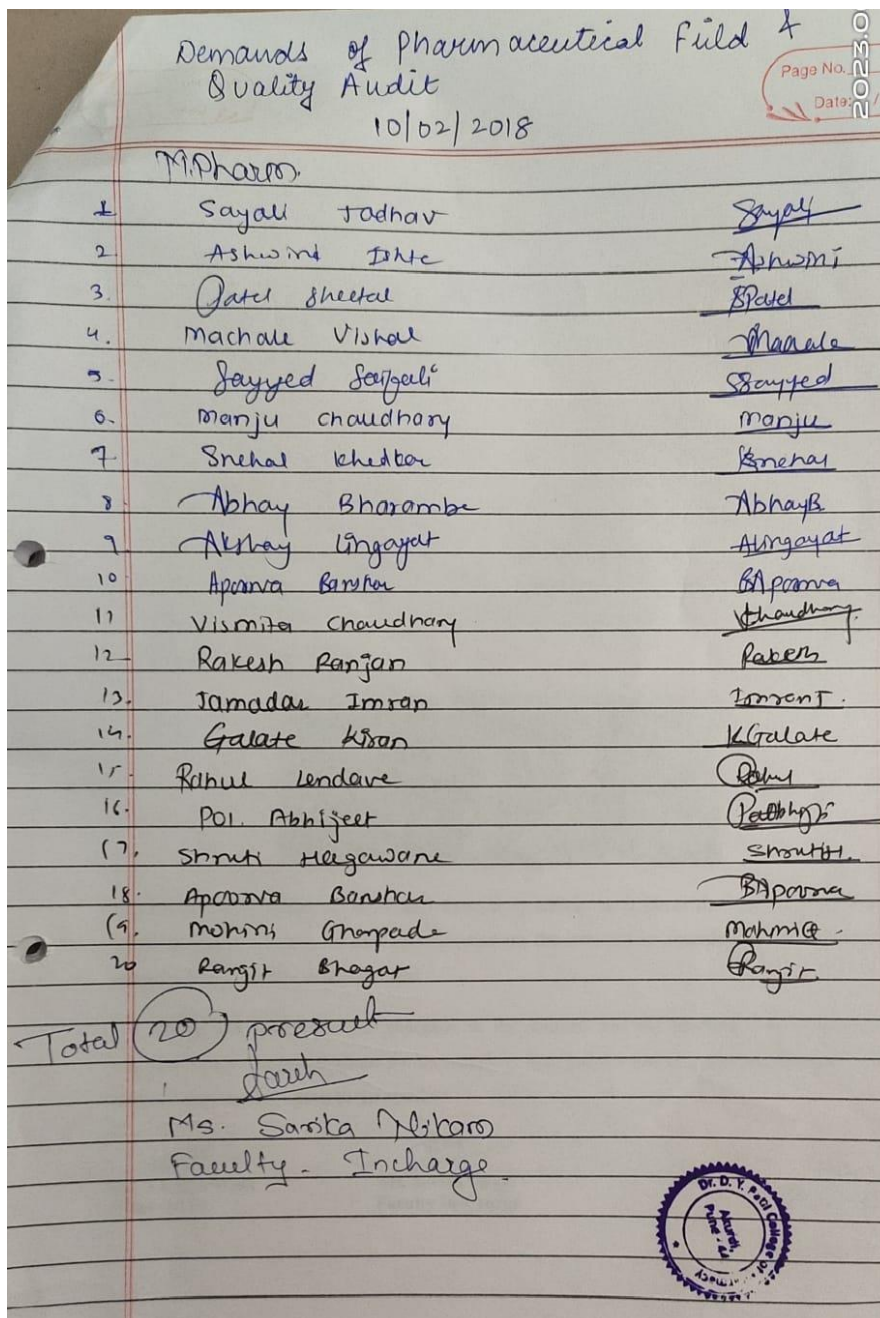 Demands of Pharmaceutical Field &
Quality Audit
10/02/2018
Page No.
Date:
2023.0
M.Pharm.
1 Sayali Jadhav Sayali
2. Ashwini Ishte Ashwini
3. Patel Sheetal SPatel
4. Machale Vishal Machale
5. Sayyed Saifali SSayyed
6. Manju Chaudhary Manju
7 Snehal Khedkar Snehal
8. Abhay Bharambe AbhayB
9 Akshay Lingayat ALingayat
10 Apoorva Banshar BApoorva
11 Vismita Chaudhary VChaudhary
12 Rakesh Ranjan Rakesh
13. Jamadar Imran ImranJ.
14. Galate Kiran KGalate
15. Rahul Lendave Rahul
16. Pol. Abhijeet
17. Shruti Hagawane ShrutiH.
18. Apoorva Banshar BApoorva
19. Mohini Ghorpade
20 Ranjit Bhagat Ranjit
Total 20 present
Ms. Sarika Nikam
Faculty - Incharge
Dr. D. Y. Patil College of Pharmacy
Akurdi,
Pune - 44